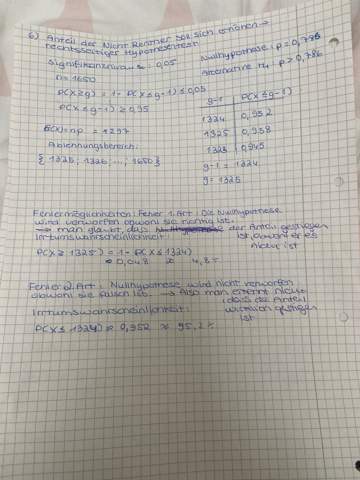 6) Anteil der Nicht Rentner soll sich erhöhen →
rechtsseitiger Hypothesentest
Signifikanzniveau α = 0,05
Nullhypothese: p = 0,786
n = 1650
Alternative H₁ = p > 0,786
P(X ≥ g) = 1 - P(X ≤ g-1) ≤ 0,05
P(X ≤ g-1) ≥ 0,95
g-1 | P(X ≤ g-1)
1324 | 0,952
1325 | 0,958
1323 | 0,945
g-1 = 1324
g = 1325
E(X) = n·p = 1297
Ablehnungsbereich:
{1325; 1326; ...; 1650}
Fehlermöglichkeiten: Fehler 1. Art: Die Nullhypothese
wird verworfen obwohl sie richtig ist.
→ man glaubt, dass der Anteil gestiegen
ist, obwohl er es
nicht ist
Irrtumswahrscheinlichkeit
P(X ≥ 1325) = 1 - P(X ≤ 1324)
≈ 0,048 ≈ 4,8%
Fehler 2. Art: Nullhypothese wird nicht verworfen
obwohl sie falsch ist. → Also man erkennt nicht,
dass der Anteil
wirklich gestiegen
ist
Irrtumswahrscheinlichkeit:
P(X ≤ 1324) ≈ 0,952 ≈ 95,2%